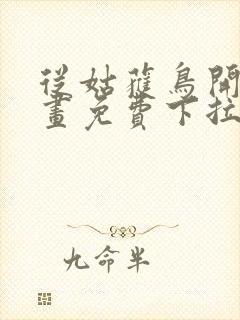 從姑蘿鳥開
畫免費下拉
九命半